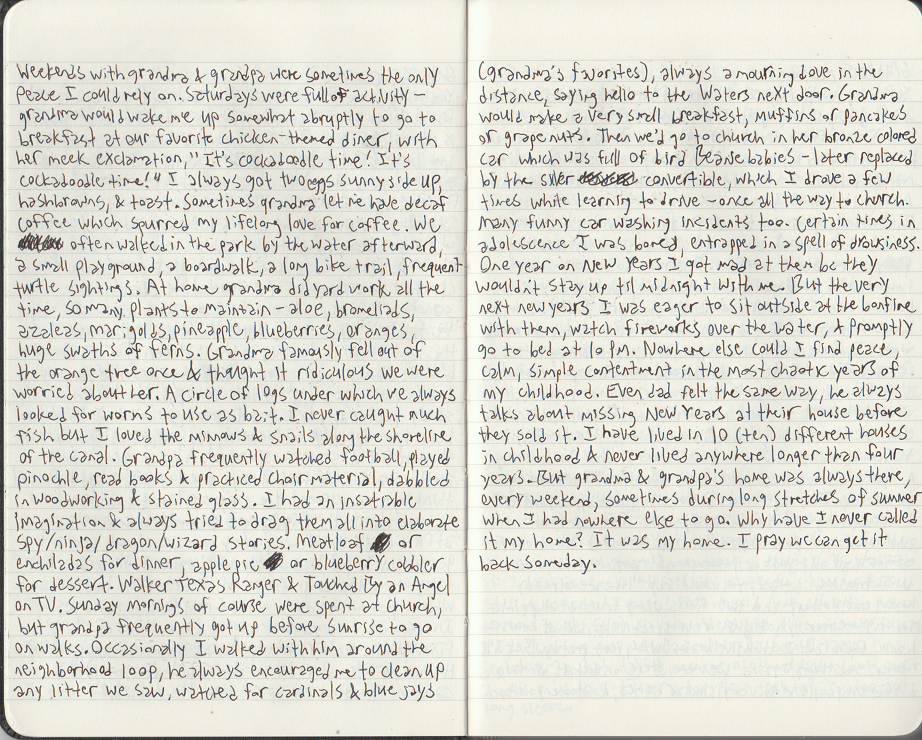 Weekends with grandma & grandpa were sometimes the only
peace I could rely on. Saturdays were full of activity -
grandma would wake me up somewhat abruptly to go to
breakfast at our favorite chicken-themed diner, with
her meek exclamation, "It's cockadoodle time! It's
cockadoodle time!" I always got two eggs sunny side up,
hashbrowns, & toast. Sometimes grandma let me have decaf
coffee which spurred my lifelong love for coffee. We
often walked in the park by the water afterward,
a small playground, a boardwalk, a long bike trail, frequent
turtle sightings. At home grandma did yard work all the
time, so many plants to maintain - aloe, bromeliads,
azaleas, marigolds, pineapple, blueberries, oranges,
huge swaths of ferns. Grandma famously fell out of
the orange tree once & thought it ridiculous we were
worried about her. A circle of logs under which we always
looked for worms to use as bait. I never caught much
fish but I loved the minnows & snails along the shoreline
of the canal. Grandpa frequently watched football, played
pinochle, read books & practiced choir material, dabbled
in woodworking & stained glass. I had an insatiable
imagination & always tried to drag them all into elaborate
spy/ninja/dragon/wizard stories. Meatloaf or
enchiladas for dinner, apple pie or blueberry cobbler
for dessert. Walker Texas Ranger & Touched By an Angel
on TV. Sunday mornings of course were spent at church,
but grandpa frequently got up before sunrise to go
on walks. Occasionally I walked with him around the
neighborhood loop, he always encouraged me to clean up
any litter we saw, watched for cardinals & blue jays
(grandma's favorites), always a mourning dove in the
distance, saying hello to the Waters next door. Grandma
would make a very small breakfast, muffins or pancakes
or grapenuts. Then we'd go to church in her bronze colored
car which was full of bird Beanie babies - later replaced
by the silver convertible, which I drove a few
times while learning to drive - once all the way to church.
Many funny car washing incidents too. Certain times in
adolescence I was bored, entrapped in a spell of drowsiness.
One year on New Years I got mad at them bc they
wouldn't stay up til midnight with me. But the very
next new years I was eager to sit outside at the bonfire
with them, watch fireworks over the water, & promptly
go to bed at 10 PM. Nowhere else could I find peace,
calm, simple contentment in the most chaotic years of
my childhood. Even dad felt the same way, he always
talks about missing New Years at their house before
they sold it. I have lived in 10 (ten) different houses
in childhood & never lived anywhere longer than four
years. But grandma & grandpa's home was always there,
every weekend, sometimes during long stretches of summer
when I had nowhere else to go. Why have I never called
it my home? It was my home. I pray we can get it
back someday.